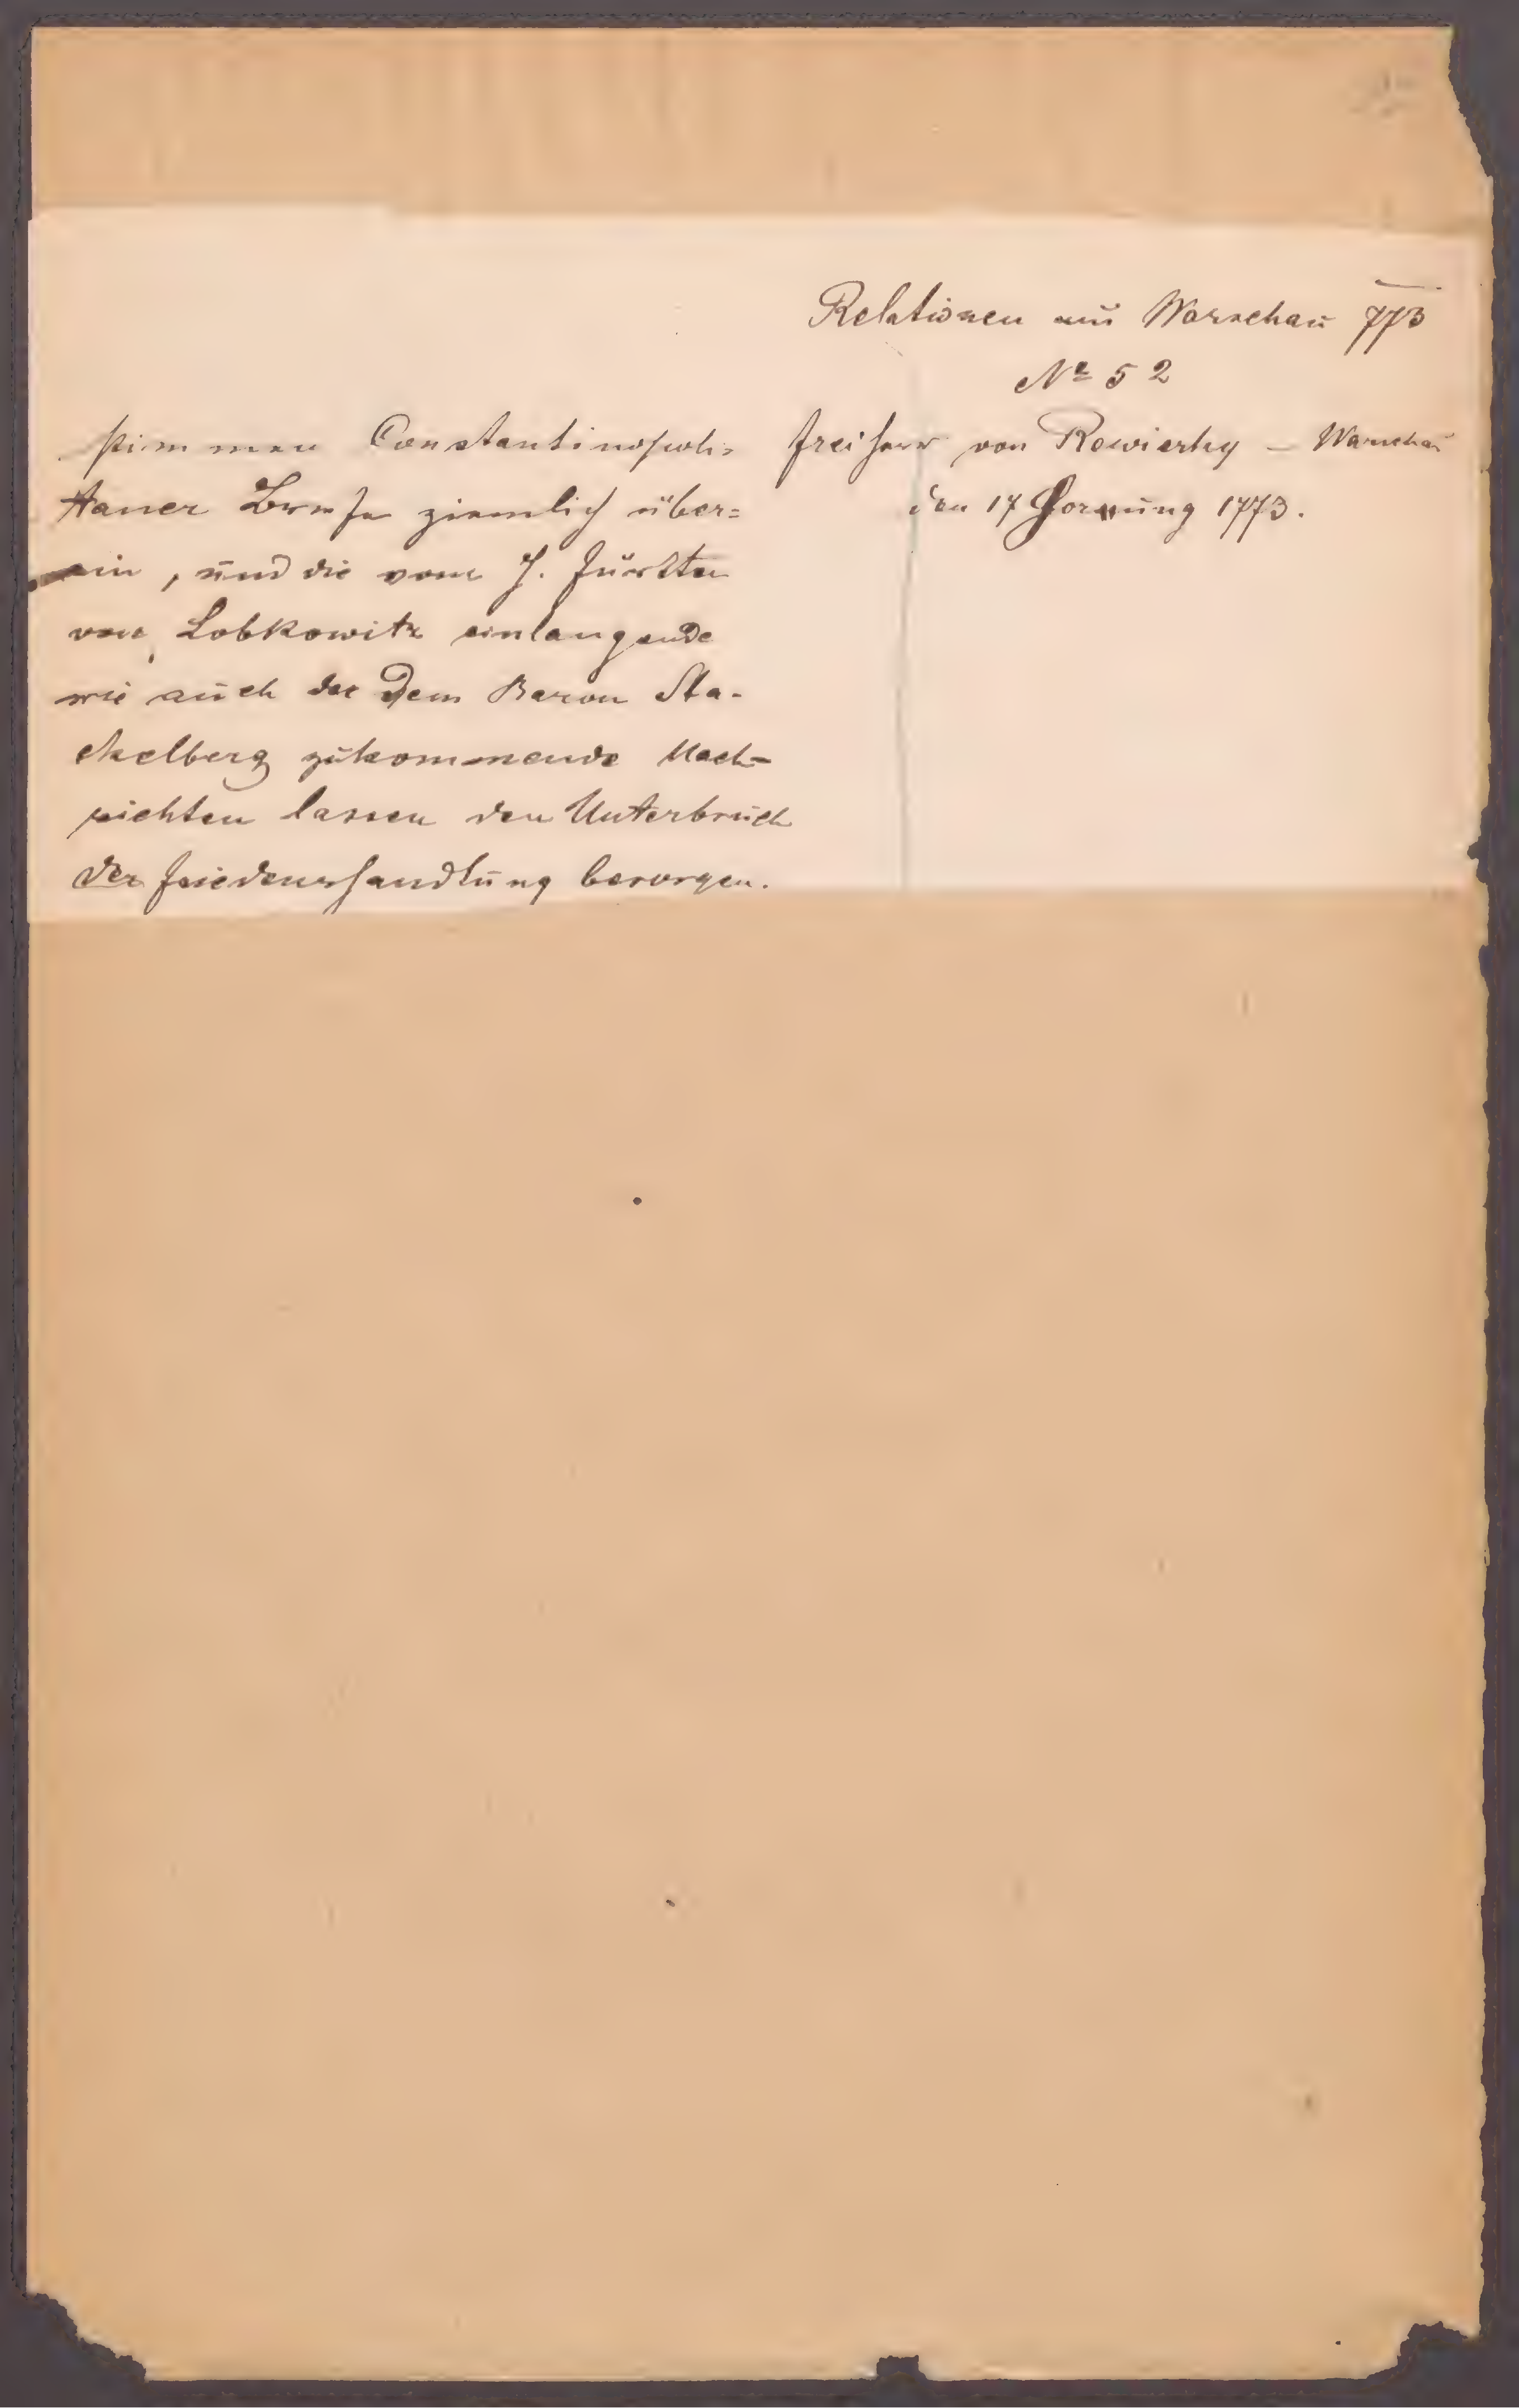 Relationen aus Warschau 773
№ 52
Freiherr von Rewiczky – Warschau
den 17 Hornung 1773.
stimmen Constantinopoli-
taner Briefe ziemlich über=
ein, und die vom H. Fürsten
von Lobkowitz einlangende
wie auch die dem Baron Sta-
ckelberg zukommende Nach-
richten lassen den Unterbruch
der Friedenshandlung besorgen.